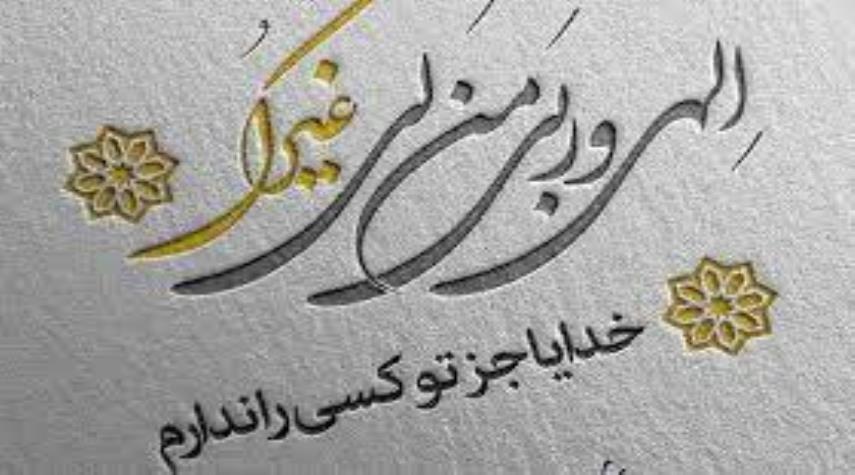 إلهی و ربی من لی غیرکَ
خدایا جز تو کسی را ندارم